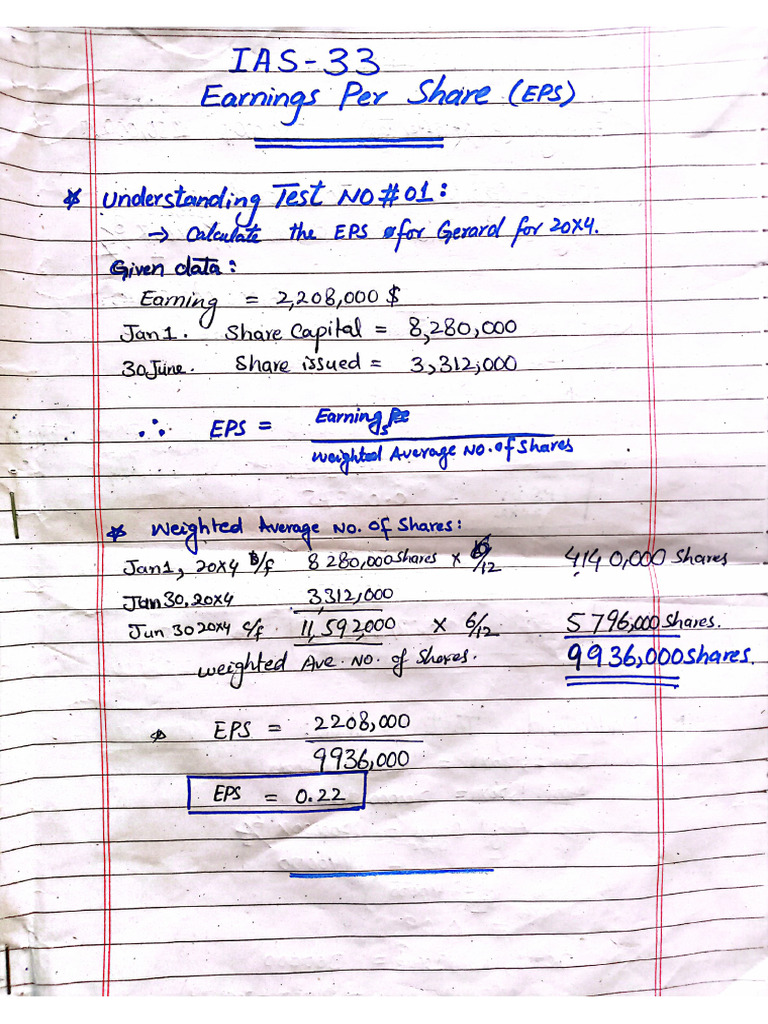 IAS-33
Earnings Per Share (EPS)
* Understanding Test NO #01:
→ Calculate the EPS for Gerard for 20X4.
Given data:
Earning = 2,208,000 $
Jan 1. Share Capital = 8,280,000
30 June. Share issued = 3,312,000
∴ EPS = Earnings
Weighted Average NO. of Shares
* Weighted Average No. of Shares:
Jan 1, 20X4 B/f 8 280,000 shares × 6/12 4140,000 Shares
Jun 30, 20X4 3312,000
Jun 30 20X4 c/f. 11,592,000 × 6/12 5 796,000 Shares.
Weighted Ave. No. of Shares. 9936,000 Shares.
* EPS = 2208,000
9936,000
EPS = 0.22